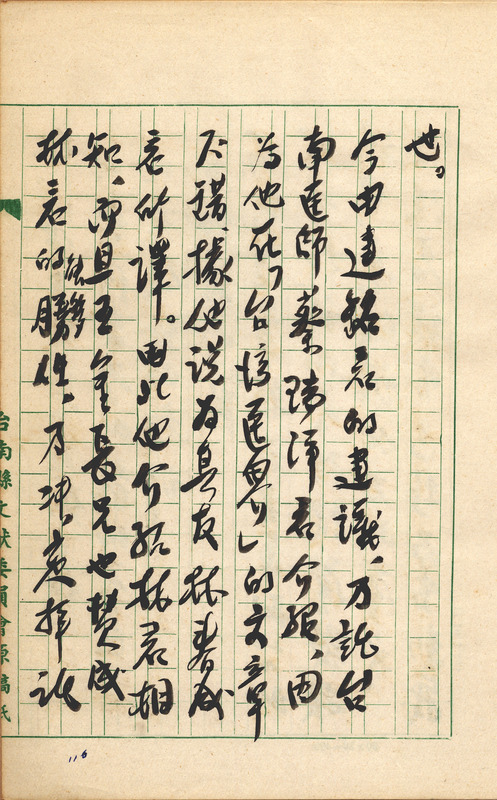 也。
今由建銘君的建議，乃託台
南医師蔡瑞洋君介紹，因
為他在「台灣医界」的文章
不錯，據他说為其友林春成
君所譯。由此他介紹林君相
知，而且王金長兄也贊成
林君的信雅勝任，乃決意拝託
台南縣文献委員會原稿紙
116